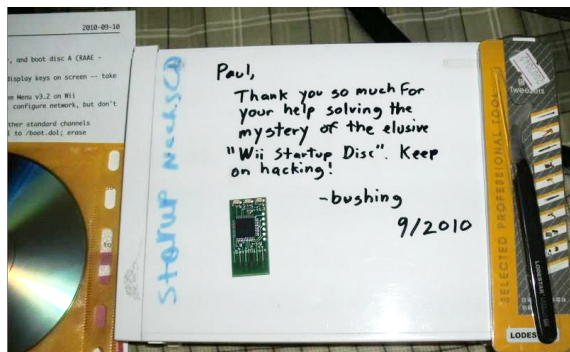 2010-09-10
, and boot disc A (RAAE -
display keys on screen -- take
Menu v3.2 on Wii
configure network, but don't
ther standard channels
l to /boot.dol; erase
Startup
Paul,
Thank you so much for
your help solving the
mystery of the elusive
"Wii Startup Disc". Keep
on hacking!
-bushing
9/2010
SELECTED PROFESSIONAL TOOL
Tweezers
LODESTAR
LODES